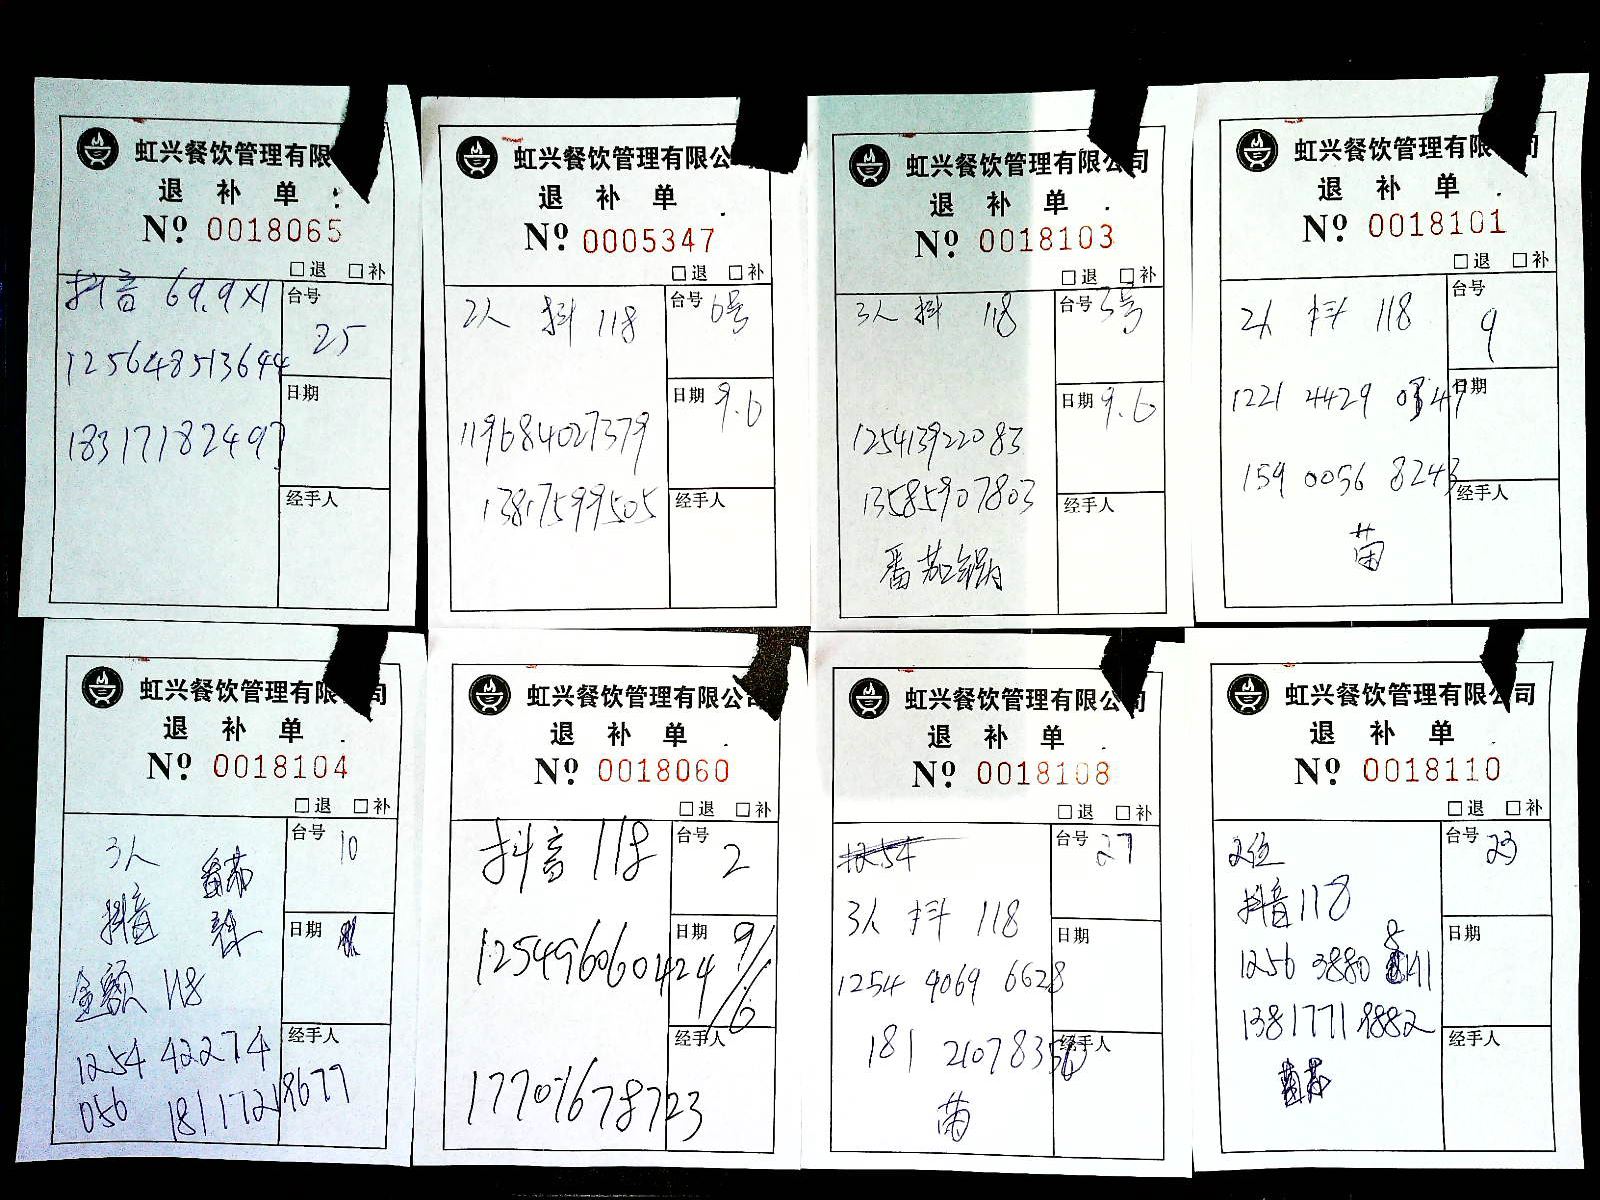 虹兴餐饮管理有限
退 补 单
Nº 0018065
□退 □补
抖音 69.9×1
台号
25
125648513644
日期
18317182497
经手人
虹兴餐饮管理有限公
退 补 单
Nº 0005347
□退 □补
2人 抖 118
台号 6号
日期 9.6
119684027379
13817599505
经手人
虹兴餐饮管理有限公司
退 补 单
Nº 0018103
□退 □补
3人 抖 118
台号 5号
日期 9.6
125413922083
13585907803
经手人
番茄锅
虹兴餐饮管理有限公司
退 补 单
Nº 0018101
□退 □补
2人 抖 118
台号
9
1221 4429
日期
159 0056 8243
经手人
苗
虹兴餐饮管理有限公司
退 补 单
Nº 0018104
□退 □补
3人
台号 10
番茄
抖音
日期
金额 118
1254 42274
经手人
056 18117219677
虹兴餐饮管理有限公司
退 补 单
Nº 0018060
□退 □补
抖音 118
台号
2
125496060424
日期 9/6
经手人
17701678723
虹兴餐饮管理有限公司
退 补 单
Nº 0018108
□退 □补
1254
台号 27
3人 抖 118
日期
1254 9069 6628
181 210783
经手人
苗
虹兴餐饮管理有限公司
退 补 单
Nº 0018110
□退 □补
2位
台号 23
抖音118
日期
1256 3880
13817719882
经手人